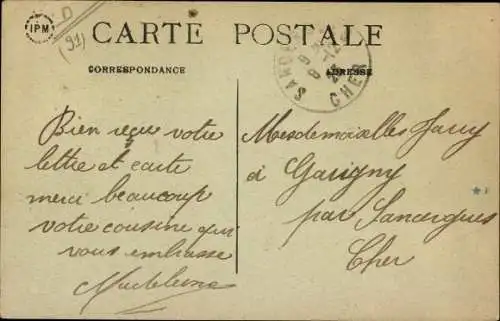 IPM
D
(91)
CARTE POSTALE
CORRESPONDANCE
ADRESSE
CHER
Bien reçu votre
lettre et carte
merci beaucoup
votre cousine qui
vous embrasse
Madeleine
Mesdemoiselles Jary
à Garigny
par Sancergues
Cher